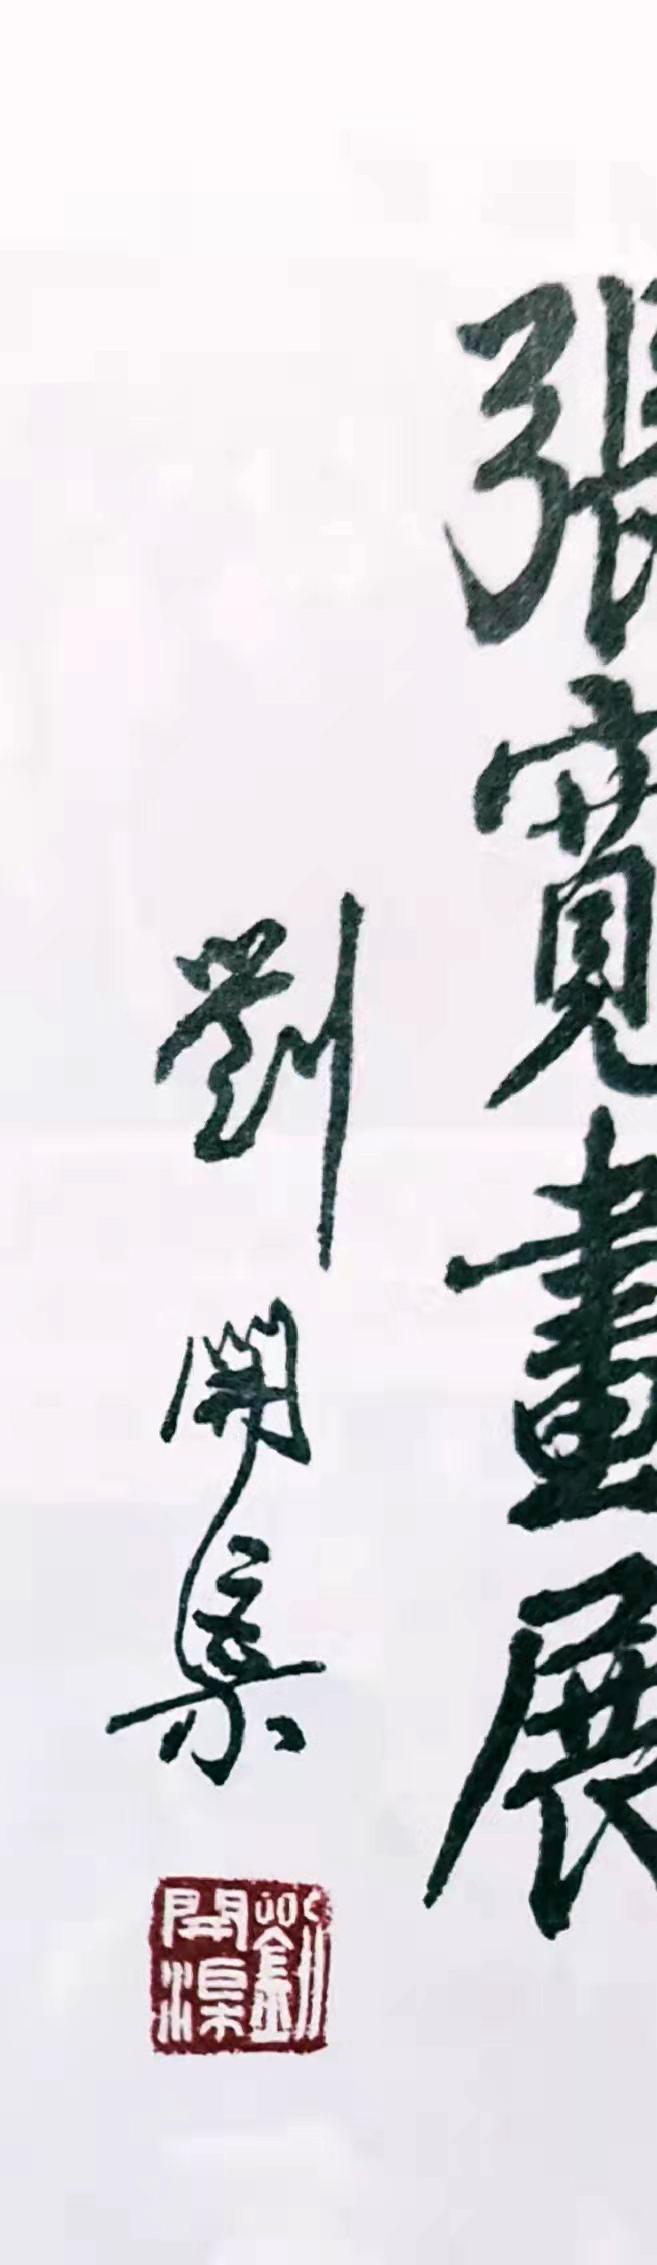 張寬畫展
劉開渠
劉開渠